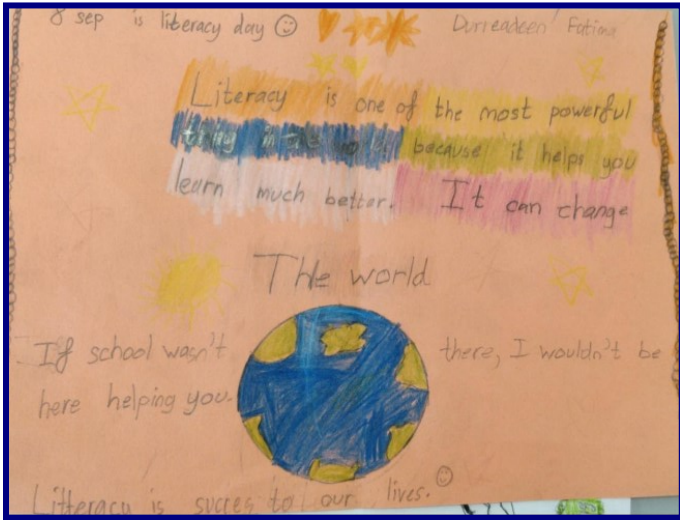 8 sep is literacy day Durreadeen Fatima
Literacy is one of the most powerful
thing in the world because it helps you
learn much better. It can change
The world
If school wasn't there, I wouldn't be
here helping you.
Litteracy is succes to our lives.